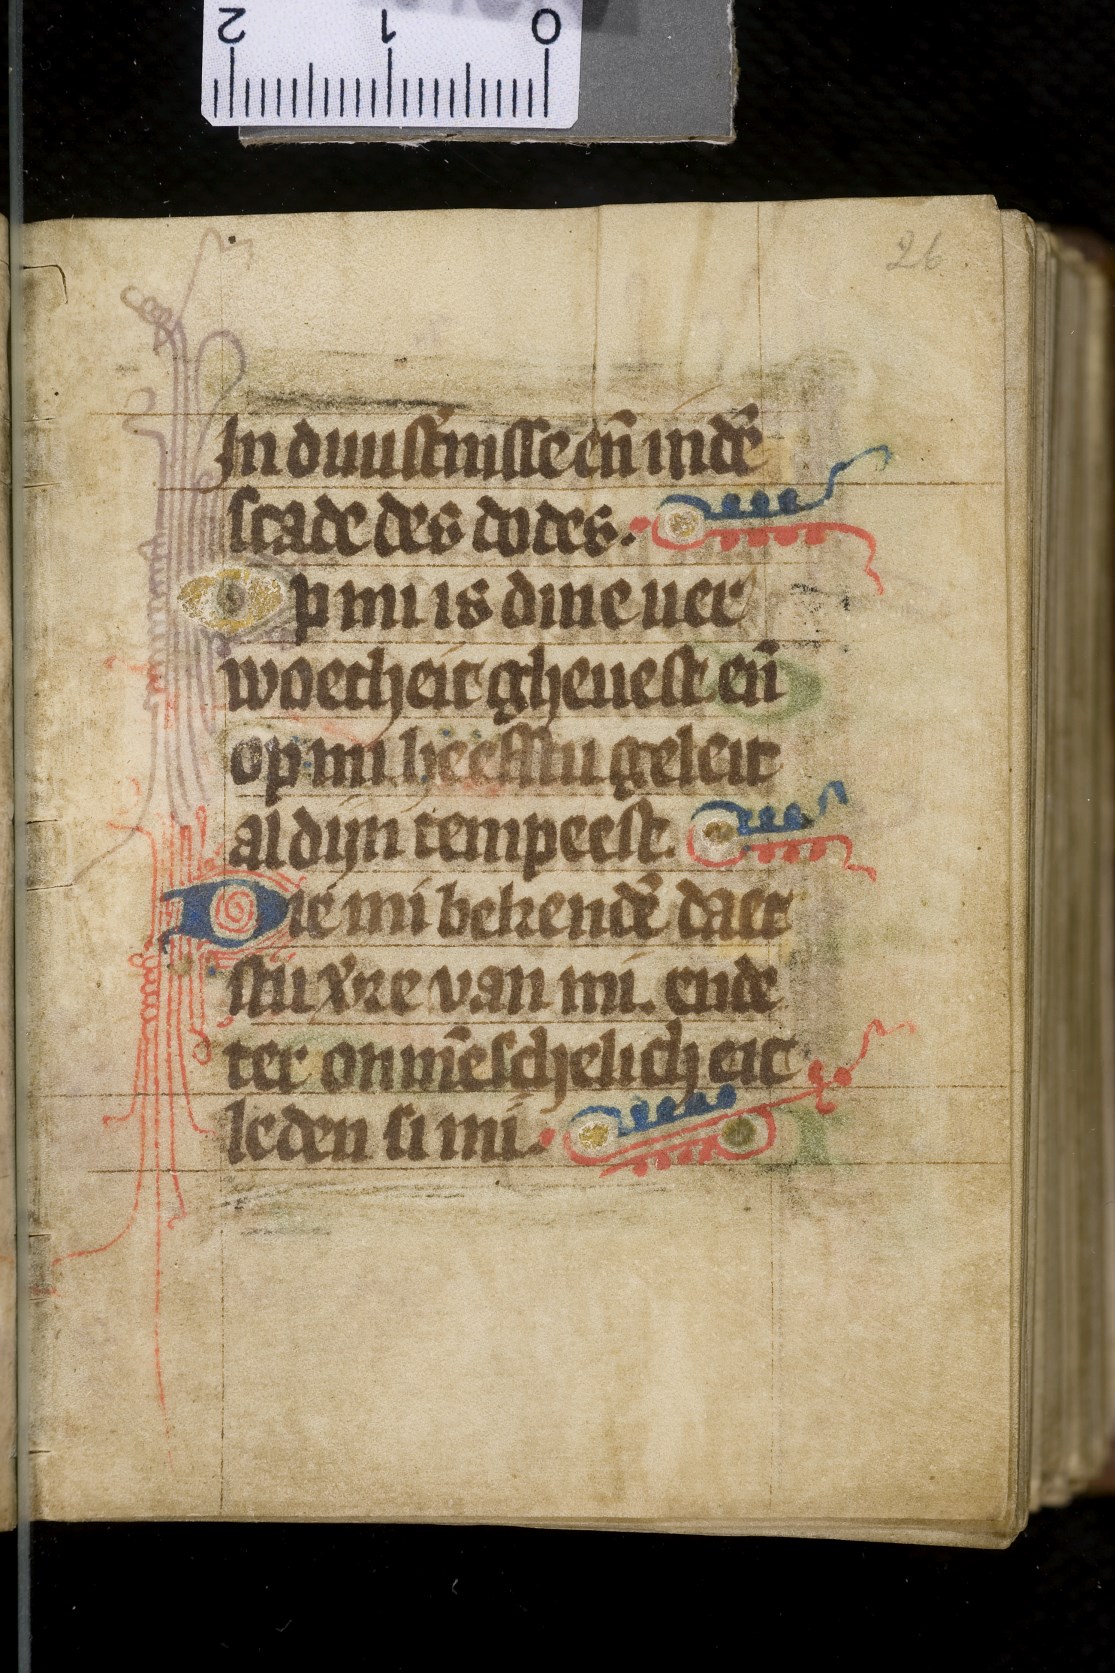 2 1 0
26
In duust̄nisse en̄ in dē
scade des dodes.
Op mi is dine uer
woetheit gheuest en̄
op mi heefstu geleit
al dijn tempeest.
Die mi bekendē daet
stu v̄re van mi. ende
ter onm̄eschelicheit
leden si mi.